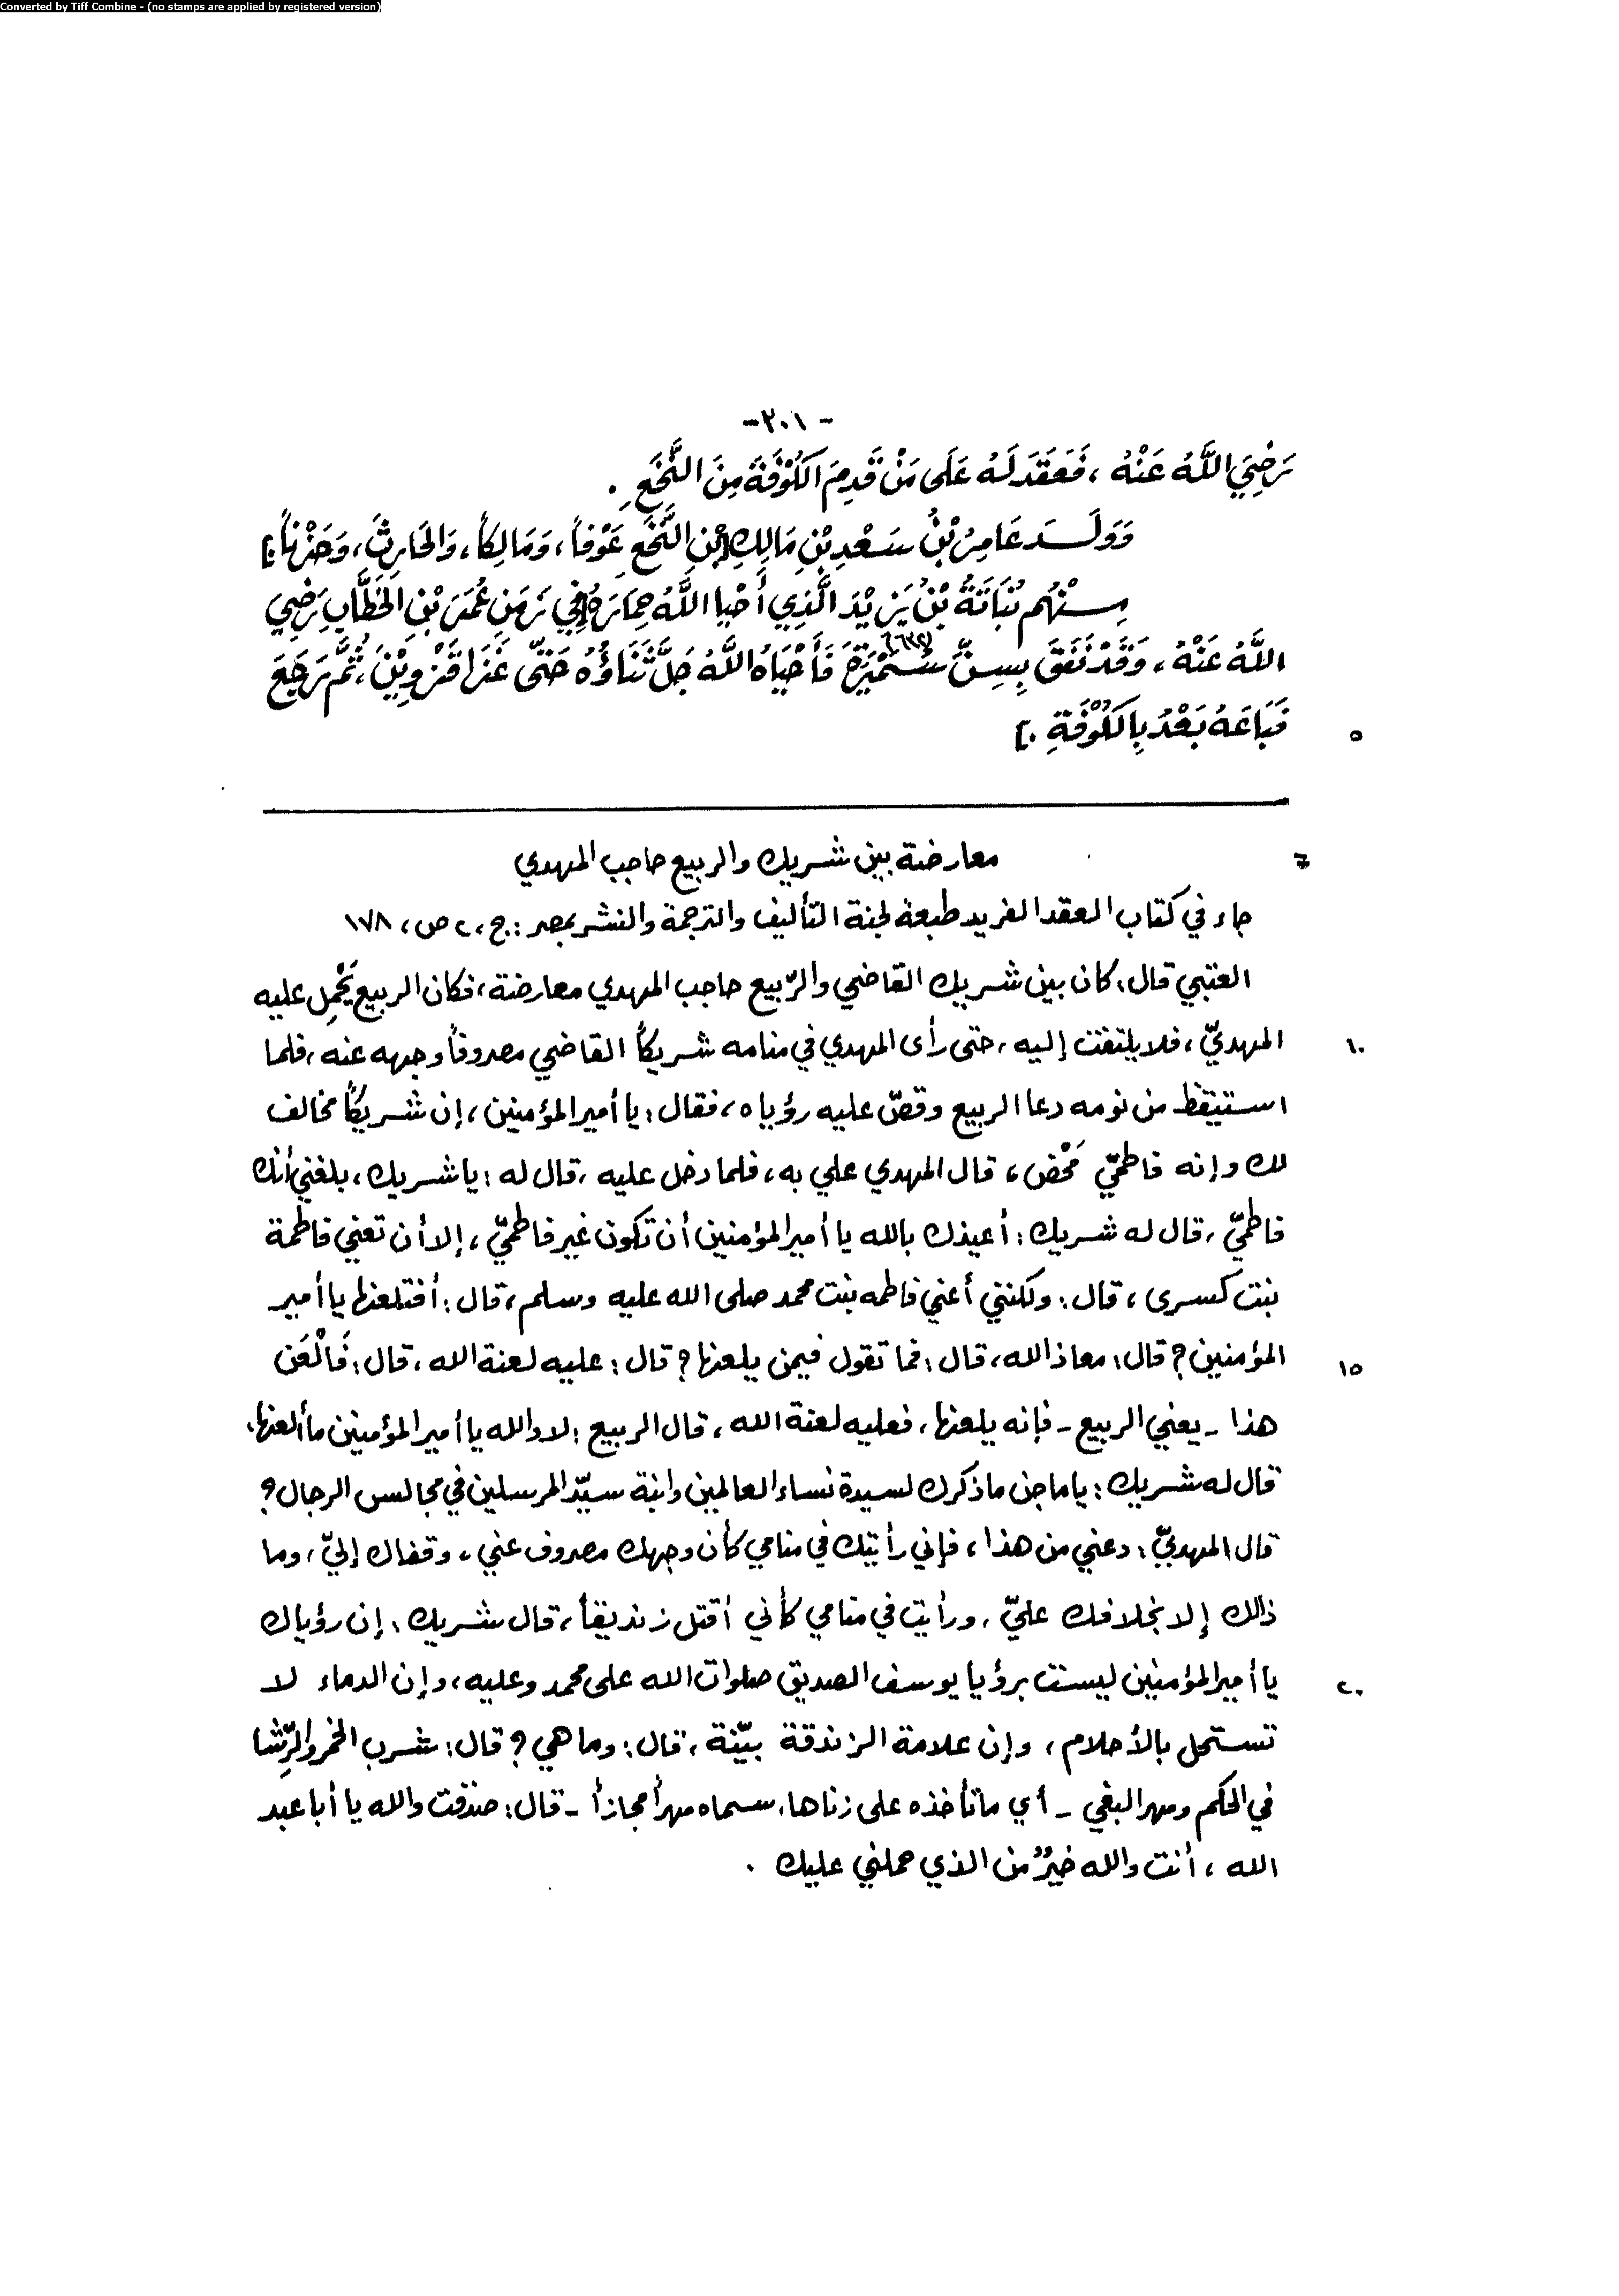 Converted by Tiff Combine - (no stamps are applied by registered version)
-٢٠١-
رَضِيَ اللَّهُ عَنْهُ ، فَعَقَدَ لَهُ عَلَى مَنْ قَدِمَ الكُوْفَةَ مِنَ النَّخَعِ .
وَوَلَـدَ عَامِرُ بْنُ سَعْدِ بْنِ مَالِكِ [بْنِ النَّخَعِ عَوْفاً ، وَمَالِكاً ، وَالحَارِثَ ، وَحَزْناً .]
مِـنْهُم نُبَاتَةُ بْنُ يَزِيْدَ الَّذِي أَحْيَا اللَّهُ حِمَارَهُ [فِي زَمَنِ عُمَرَ بْنِ الخَطَّابِ رَضِيَ
اللَّهُ عَنْهُ ، وَقَدْ نَفَقَ بِسِنِّ سُـمَيْرَةَ فَأَحْيَاهُ اللَّهُ جَلَّ ثَنَاؤُهُ حَتَّى غَزَا قَزْوِيْنَ ، ثُمَّ رَجَعَ
فَبَاعَهُ بَعْدُ بِالكُوْفَةِ .]
٥
معارضة بين شريك والربيع حاجب المهدي
جاء في كتاب العقد الفريد طبعة لجنة التأليف والترجمة والنشر بمصر : ج ، ٢ ص ، ١٧٨
العتبي قال : كان بين شريك القاضي والرّبيع حاجب المهدي معارضة ، فكان الربيع يَحْمِل عليه
المهديّ ، فلا يلتفت إليه ، حتى رأى المهدي في منامه شريكاً القاضي مصروفاً وجهه عنه ، فلما
١٠
استيقظ من نومه دعا الربيع وقصّ عليه رؤياه ، فقال : يا أمير المؤمنين ، إن شريكاً مخالف
لك وإنه فاطميّ مَحْض ، قال المهدي علي به ، فلما دخل عليه ، قال له : يا شريك ، بلغني أنك
فاطميّ ، قال له شريك : أعيذك بالله يا أمير المؤمنين أن تكون غير فاطميّ ، إلا أن تعني فاطمة
بنت كسرى ، قال : ولكنني أعني فاطمه بنت محمد صلى الله عليه وسلم ، قال : أفتلعنها يا أمير
المؤمنين ؟ قال : معاذ الله ، قال : فما تقول فيمن يلعنها ؟ قال : عليه لعنة الله ، قال : فَالْعَن
١٥
هذا - يعني الربيع - فإنه يلعنها ، فعليه لعنة الله ، قال الربيع : لا والله يا أمير المؤمنين ما ألعنها ،
قال له شريك : يا ماجن ما ذكرك لسيدة نساء العالمين وابنة سيّد المرسلين في مجالس الرجال ؟
قال المهديّ : دعني من هذا ، فإني رأيتك في منامي كأن وجهك مصروف عني ، وقفاك إليّ ، وما
ذلك إلا بخلافك عليّ ، ورأيت في منامي كأني أقتل زنديقاً ، قال شريك : إن رؤياك
يا أمير المؤمنين ليست برؤيا يوسف الصديق صلوات الله على محمد وعليه ، وإن الدماء لا
٢٠
تستحل بالأحلام ، وإن علامة الزندقة بيّنة ، قال : وما هي ؟ قال : شرب الخمر والرِّشا
في الحكم ومهر البغي - أي ما تأخذه على زناها ، سماه مهراً مجازاً - قال : صدقت والله يا أبا عبد
الله ، أنت والله خيرٌ من الذي حملني عليك .